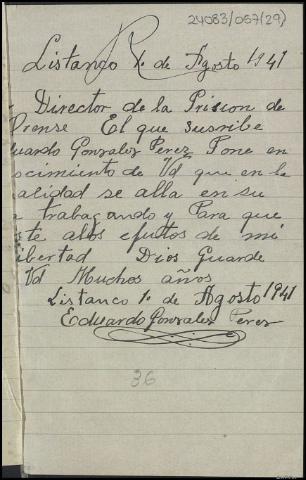 24083/057(29)
Listanco 1º de Agosto 1941
Director de la Pricion de
Orense El que susribe
duardo Gonzalez Perez Pone en
ocimiento de Vd que en la
alidad se alla en su
trabagando y Para que
ste alos efutos de mi
ibertad Dios Guarde
Vd Muchos años
Listanco 1º de Agosto 1941
Eduardo Gonzalez Perez
36